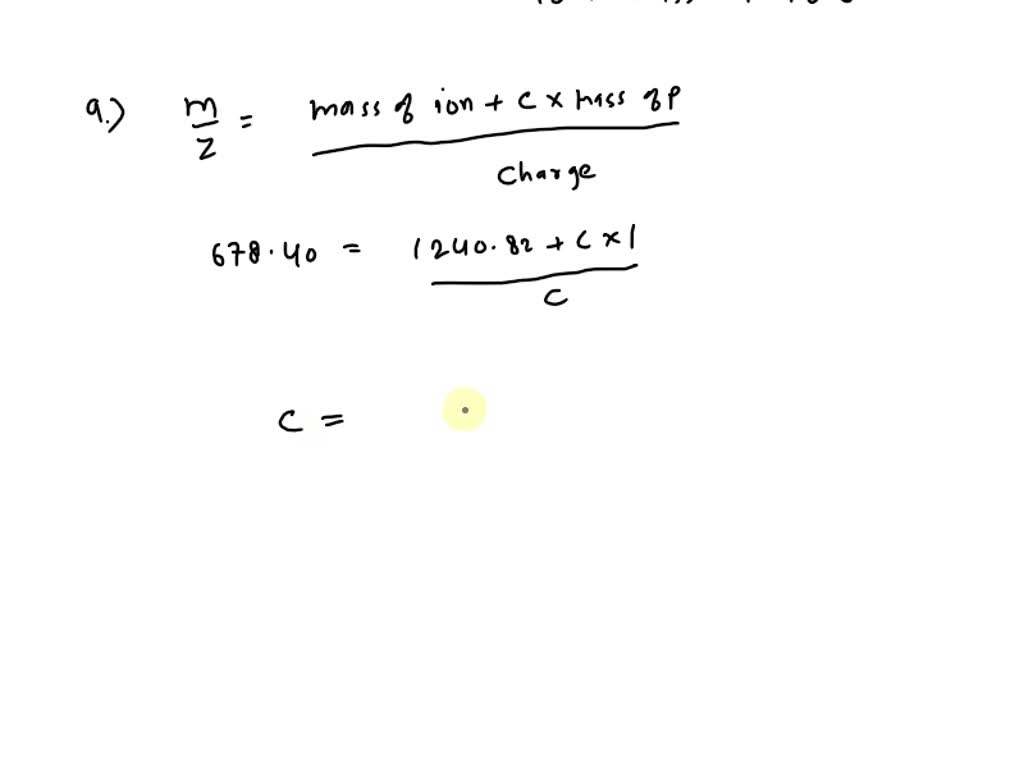 a.) m/z = mass of ion + C x mass of P / Charge
678.40 = 1240.82 + C x 1 / C
C =